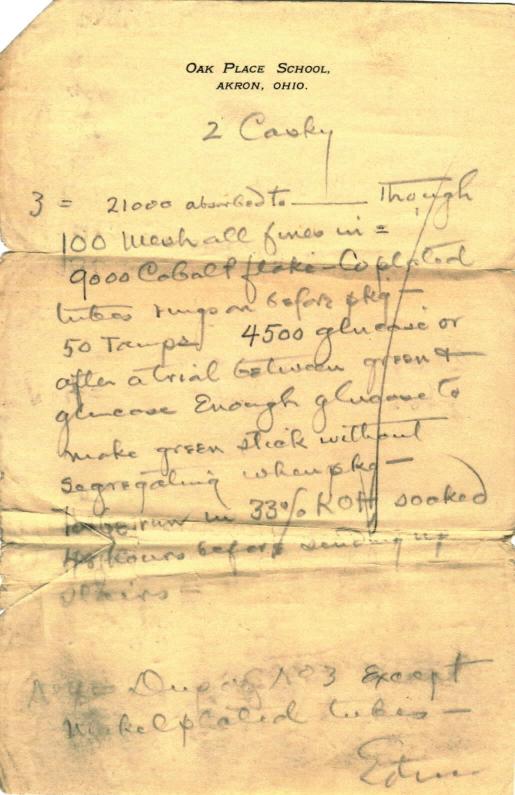 OAK PLACE SCHOOL,
AKRON, OHIO.
2 Casky
3 = 21000 absorbed to ——— Through
100 Mesh all fines in =
9000 Cobalt flake - Co plated
tubes rings on before pkg —
50 Tamps 4500 glucose or
after a trial between green &
glucose Enough glucose to
make green stick without
segregating when pkg —
To be run in 33% KOH soaked
48 hours before sending up
stairs —
No 4 = Dup of No 3 Except
Nickel plated tubes —